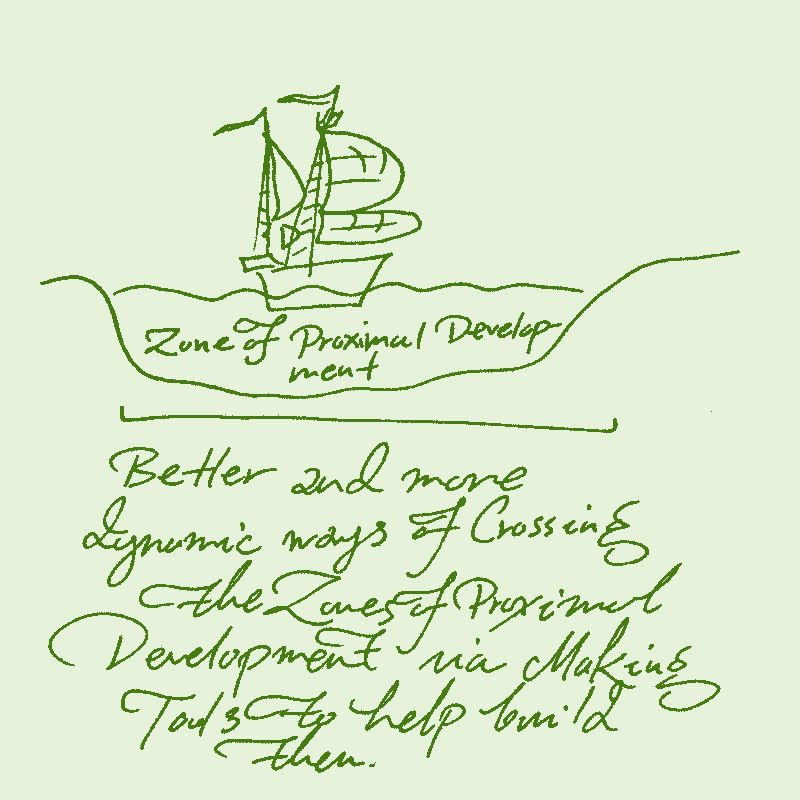 Zone of Proximal Develop-
ment
Better and more
dynamic ways of Crossing
the Zones of Proximal
Development via Making
Tools to help build
them.